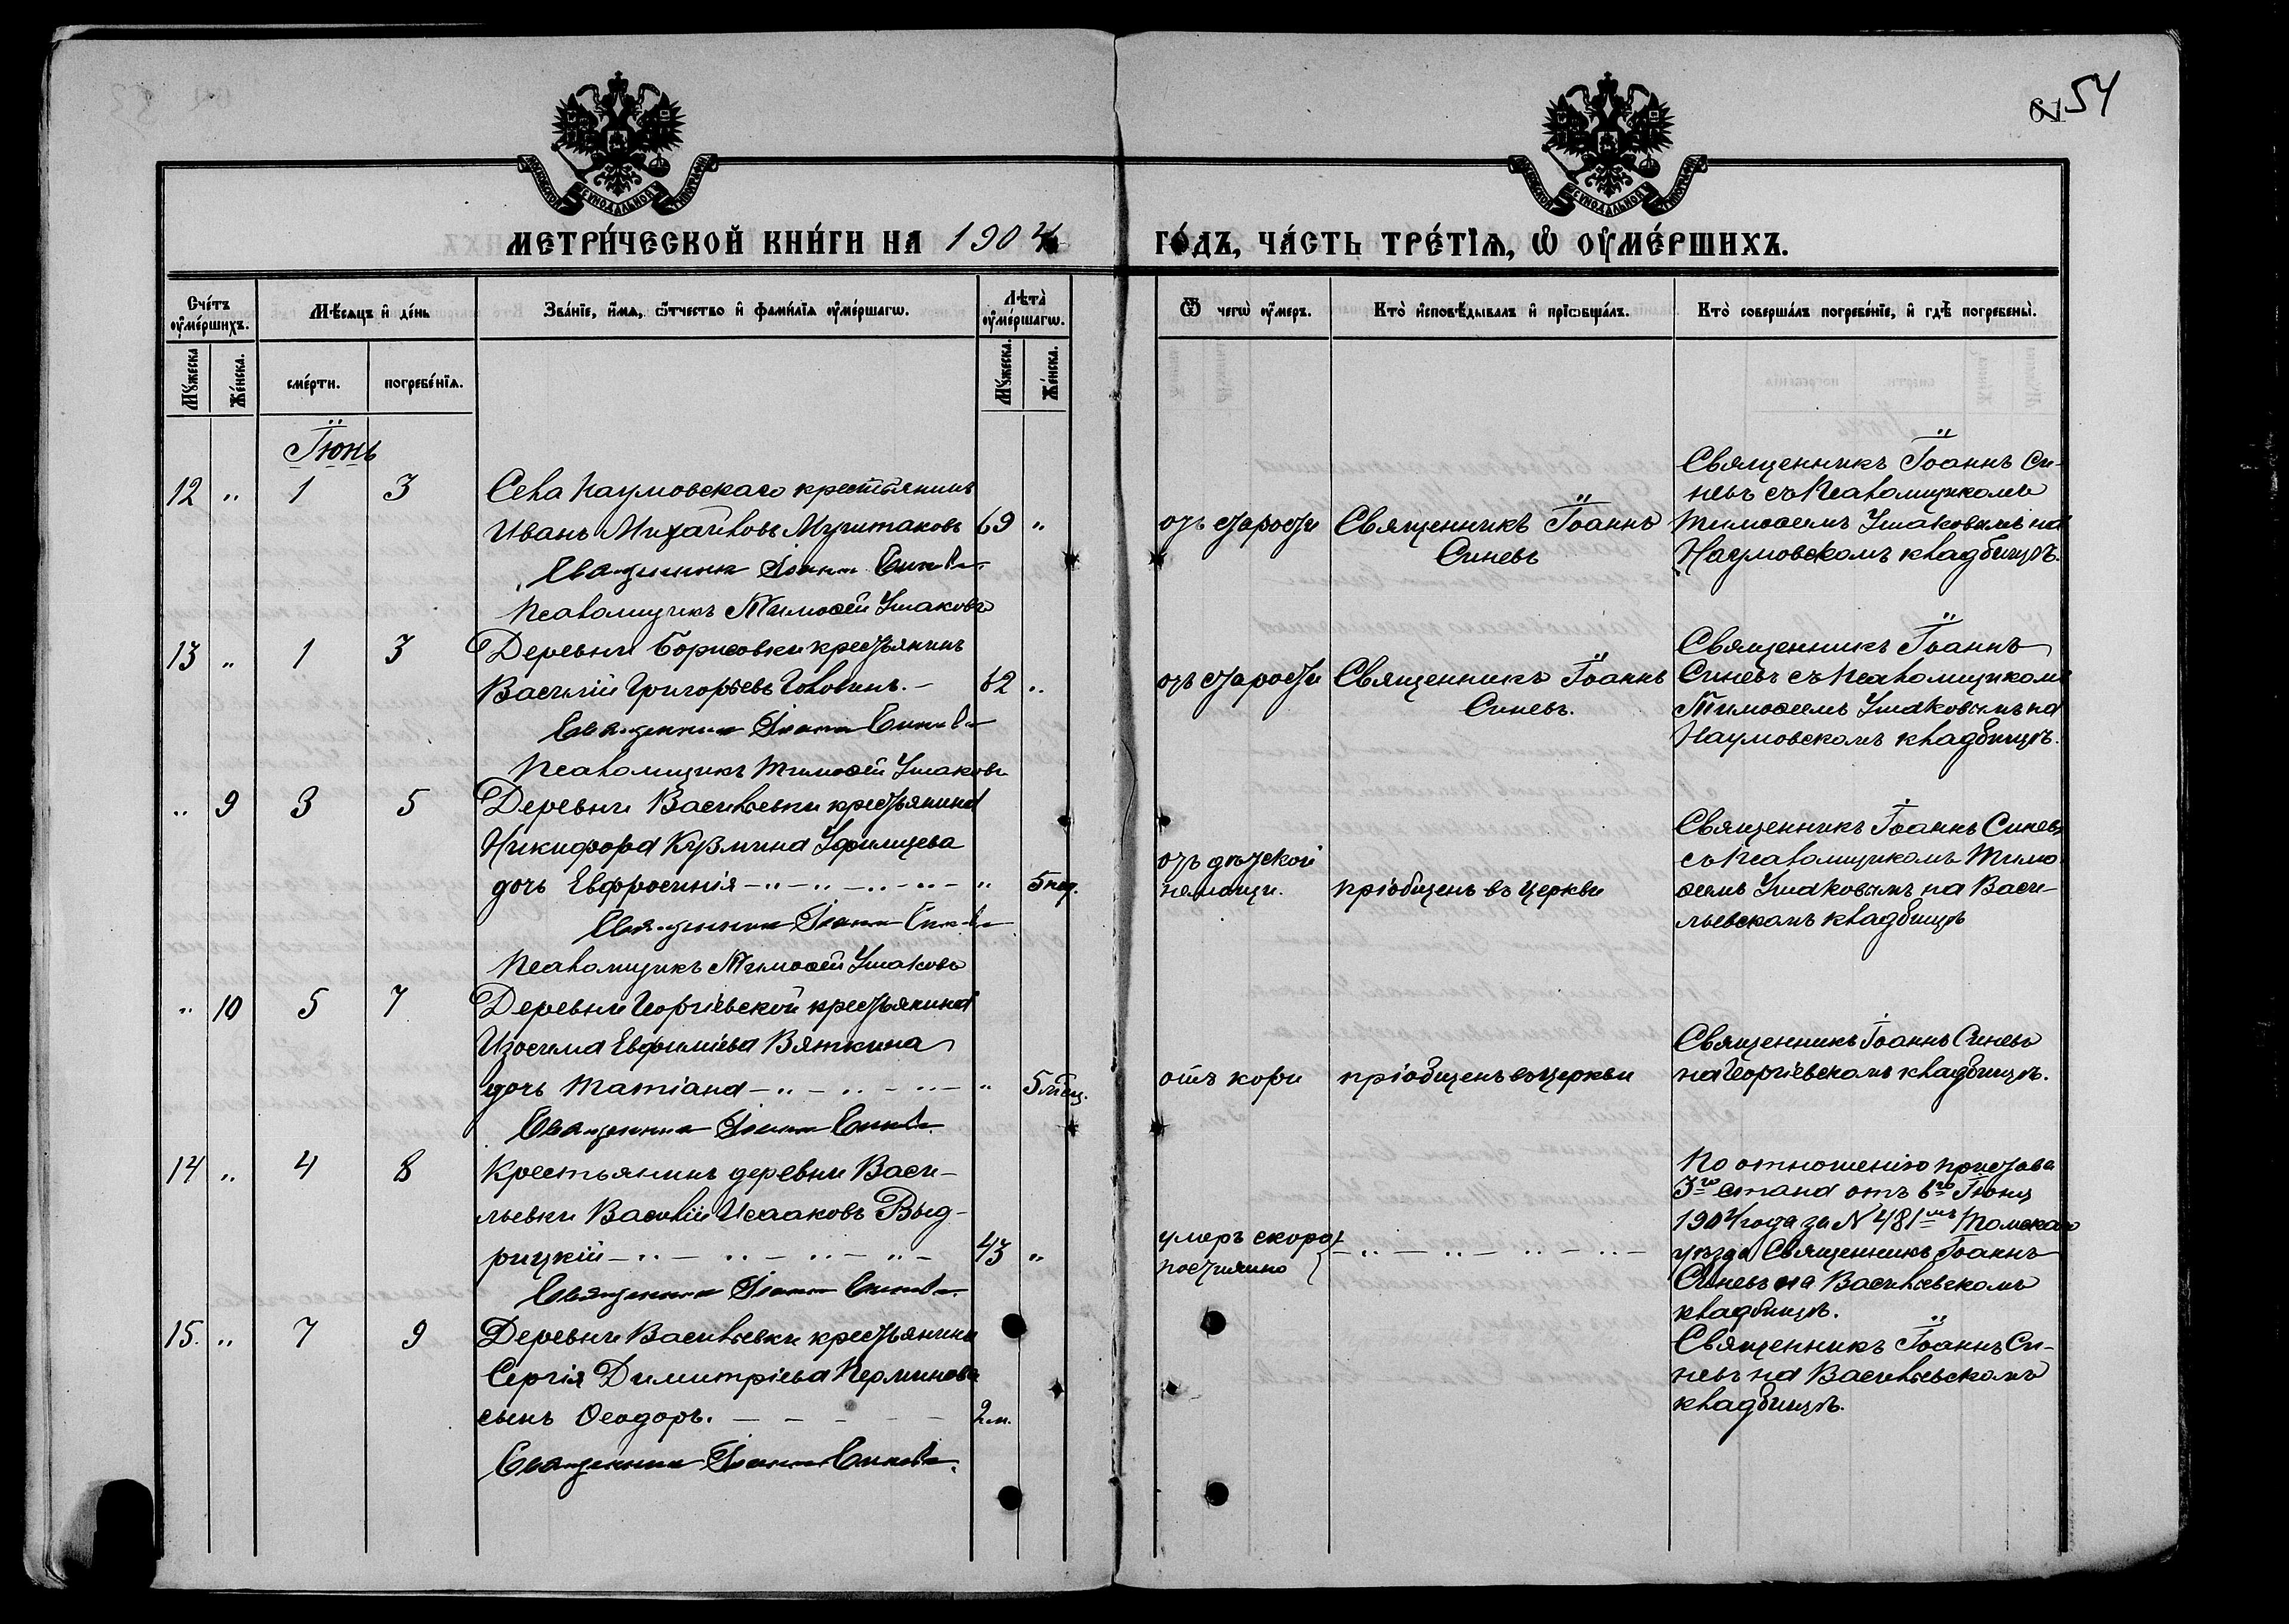 54
МЕТРИ́ЧЕСКОЙ КНИ́ГИ НА 1904
ГО́ДЪ, ЧА́СТЬ ТРЕ́ТЇѦ, Ѽ ОУ҆МЕ́РШИХЪ.
Сче́тъ оу҆ме́ршихъ.
Мѣ́сяцъ и҆ де́нь
Зва́нїе, и҆́мѧ, ѻ҆́тчество и҆ фами́лїѧ оу҆ме́ршагѡ.
Лѣ́та оу҆ме́ршагѡ.
Ѿ чегѡ̀ оу҆́меръ.
Кто̀ и҆сповѣ́дывалъ и҆ прїѡбща́лъ.
Кто̀ соверша́лъ погребе́нїе, и҆ гдѣ̀ погребены̀.
Мꙋ́жеска
Же́нска.
сме́рти.
погребе́нїѧ.
Мꙋ́жеска.
Же́нска.
Іюнь
12 " 1 3 Села Наумовскаго крестьянинъ
Иванъ Михайловъ Муштаковъ 69 "
Священникъ Іоаннъ Синевъ
Псаломщикъ Тимоѳей Ушаковъ
отъ старости
Священникъ Іоаннъ
Синевъ
Священникъ Іоаннъ Си-
невъ съ Псаломщикомъ
Тимоѳеемъ Ушаковымъ на
Наумовскомъ кладбищѣ.
13 " 1 3 Деревни Борисовки крестьянинъ
Василій Григорьевъ Головинъ. – 62 "
Священникъ Іоаннъ Синевъ
Псаломщикъ Тимоѳей Ушаковъ
отъ старости
Священникъ Іоаннъ
Синевъ.
Священникъ Іоаннъ
Синевъ съ Псаломщикомъ
Тимоѳеемъ Ушаковымъ на
Наумовскомъ кладбищѣ.
" 9 3 5 Деревни Васильевки крестьянина
Никифора Кузмина Уфимцева
дочь Евфросинія – " – " – " – " – " 5 нед.
Священникъ Іоаннъ Синевъ
Псаломщикъ Тимоѳей Ушаковъ
отъ дѣтской
немощи.
пріобщенъ въ церкви
Священникъ Іоаннъ Синевъ
съ Псаломщикомъ Тимо
ѳеемъ Ушаковымъ на Васи-
льевскомъ кладбищѣ
" 10 5 7 Деревни Георгіевской крестьянина
Изосима Евфиміева Вяткина
дочь Татіана – " – " – " – " 5 мѣсц.
Священникъ Іоаннъ Синевъ.
отъ кори
пріобщенъ въ церкви
Священникъ Іоаннъ Синевъ
на Георгіевскомъ кладбищѣ.
14 " 4 8 Крестьянинъ деревни Васи-
льевки Василій Исааковъ Выд-
рицкій – " – " – " – " – 43 "
Священникъ Іоаннъ Синевъ.
умеръ скоро
постижно
– " – " – " – " –
По отношенію пристава
3го стана отъ 6го Іюня
1904 года за N 481мъ Томскаго
уѣзда Священникъ Іоаннъ
Синевъ на Васильевскомъ
кладбищѣ.
15. " 7 9 Деревни Васильевки крестьянина
Сергія Димитріева Перминова
сынъ Ѳеодоръ. – – – – – 2 м.
Священникъ Іоаннъ Синевъ.
Священникъ Іоаннъ Си-
невъ на Васильевскомъ
кладбищѣ.